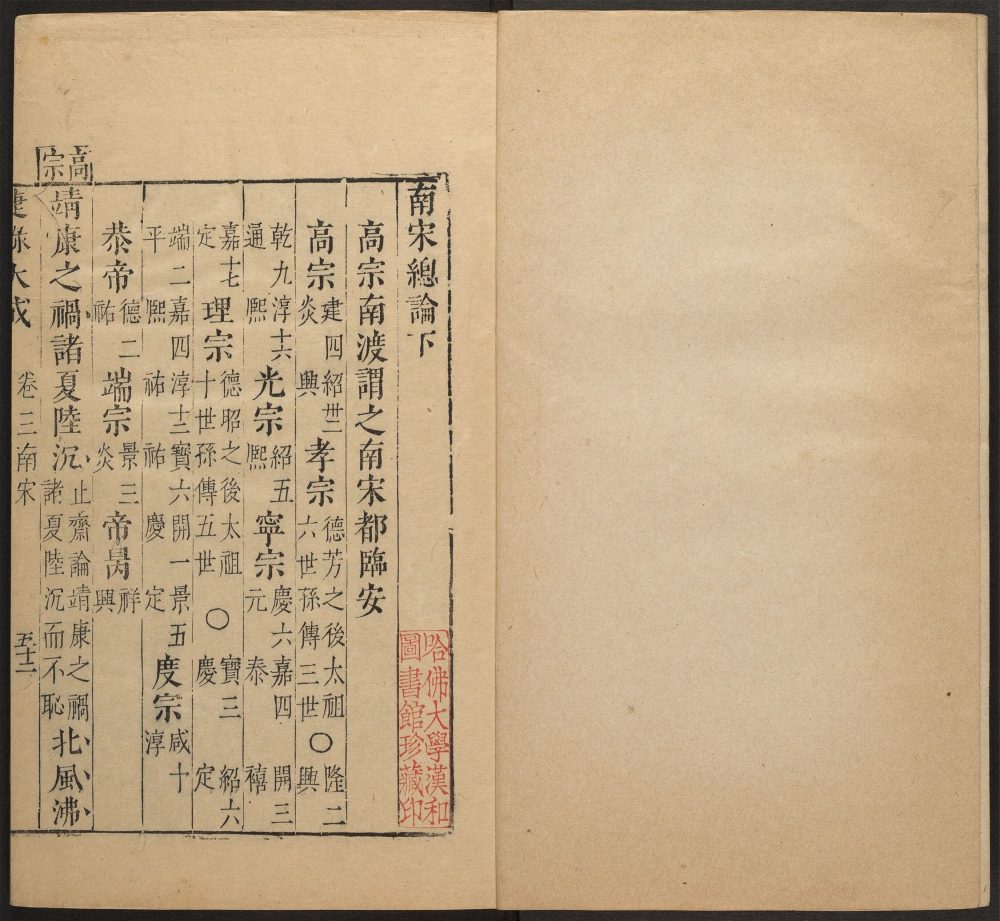 南宋總論下
哈佛大學漢和
圖書館珍藏印
高宗南渡謂之南宋都臨安
高宗建四紹卅二炎興孝宗德芳之後太祖六世孫傳三世○隆二興
乾九淳十六通熙光宗紹五熙寧宗慶六嘉四開三元泰禧
嘉十七定理宗德昭之後太祖十世孫傳五世○寶三紹六慶定
端二嘉四淳十二寶六開一景五平熙祐祐慶定度宗咸十淳
恭帝德二祐端宗景三炎帝昺祥興
高宗
靖康之禍諸夏陸沉止齋論靖康之禍諸夏陸沉而不恥北風沸
捷錄大成 卷三南宋 五十二